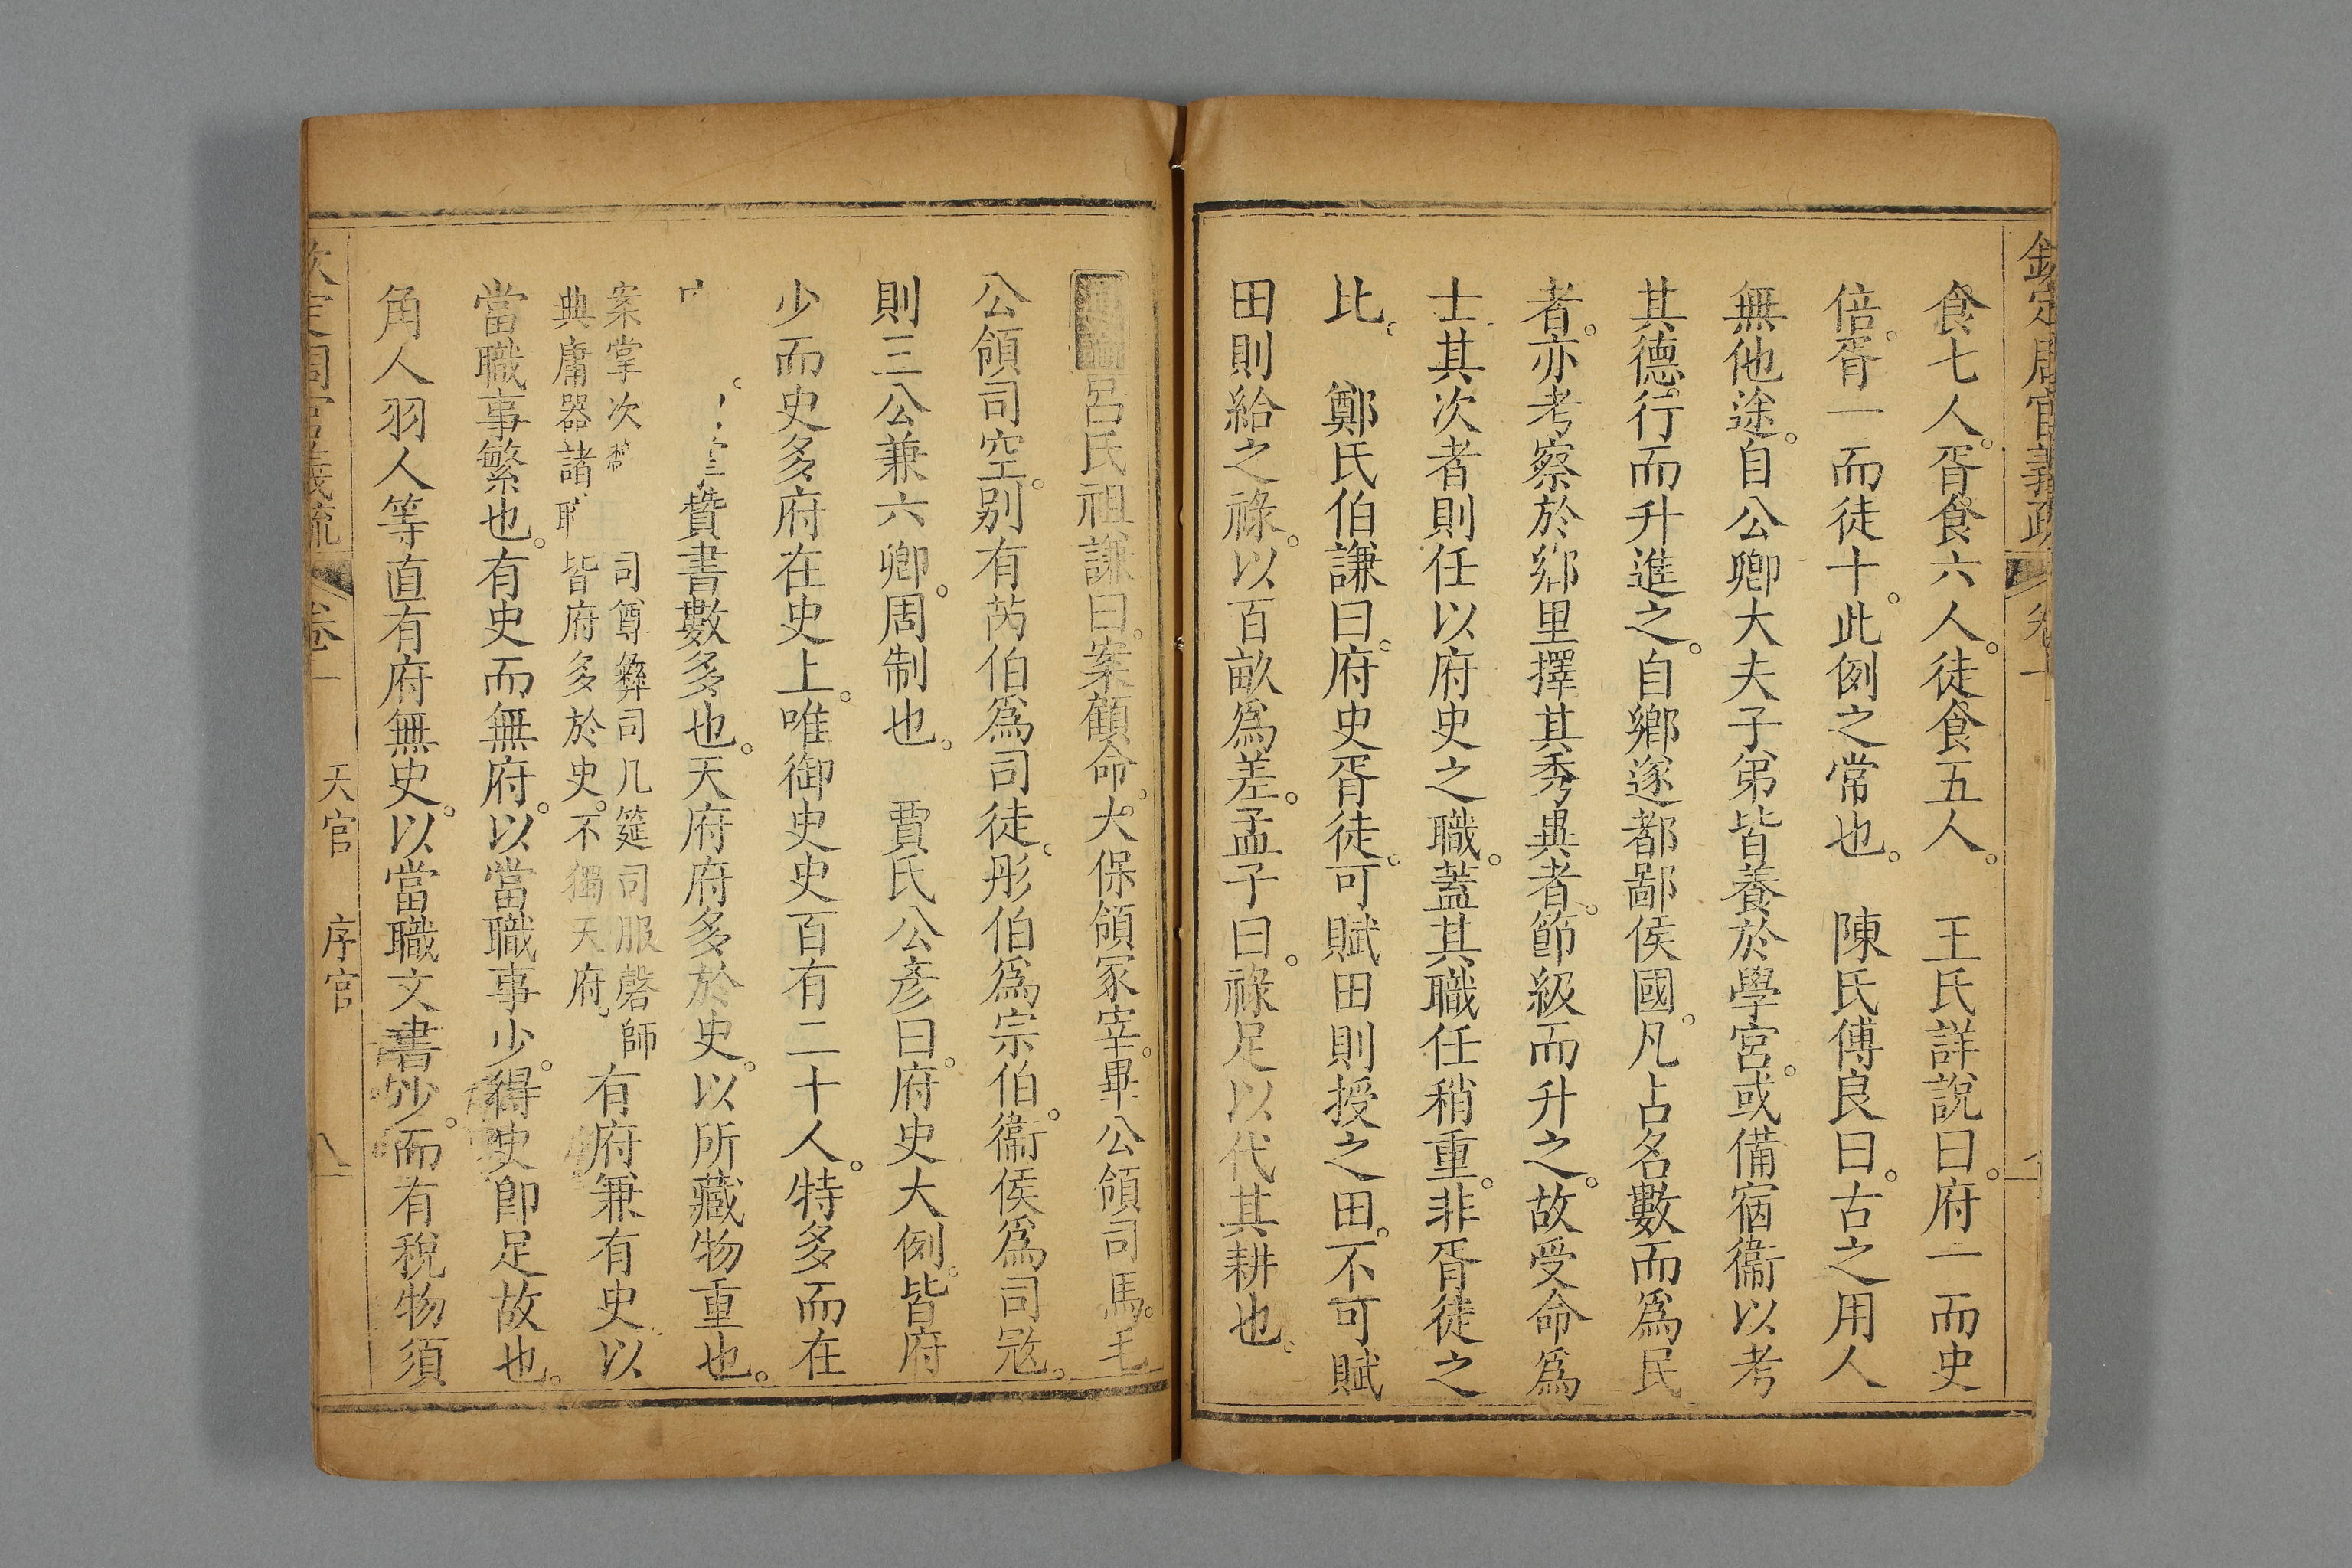 欽定周官義疏 卷一
食七人。胥食六人。徒食五人。 王氏詳說曰。府一而史
倍。胥一而徒十。此例之常也。 陳氏傅良曰。古之用人
無他途。自公卿大夫子弟皆養於學宮。或備宿衞以考
其德行而升進之。自鄉遂都鄙侯國。凡占名數而爲民
者。亦考察於鄉里擇其秀異者。節級而升之。故受命爲
士其次者則任以府史之職。蓋其職任稍重。非胥徒之
比。 鄭氏伯謙曰。府史胥徒。可賦田則授之田。不可賦
田則給之祿。以百畝爲差。孟子曰。祿足以代其耕也。
通論呂氏祖謙曰。案顧命。大保領冢宰。畢公領司馬。毛
公領司空。别有芮伯爲司徒。彤伯爲宗伯。衞侯爲司宼。
則三公兼六卿。周制也。 賈氏公彥曰。府史大例。皆府
少而史多。府在史上。唯御史史百有二十人。特多而在
贊書數多也。天府府多於史。以所藏物重也。
案掌次
典庸器諸
司尊彝司几筵司服磬師
皆府多於史。不獨天府。
有府兼有史以
當職事繁也。有史而無府。以當職事少。得史卽足故也。
角人羽人等直有府無史。以當職文書少。而有稅物須
欽定周官義疏 卷一 天官 序官 八